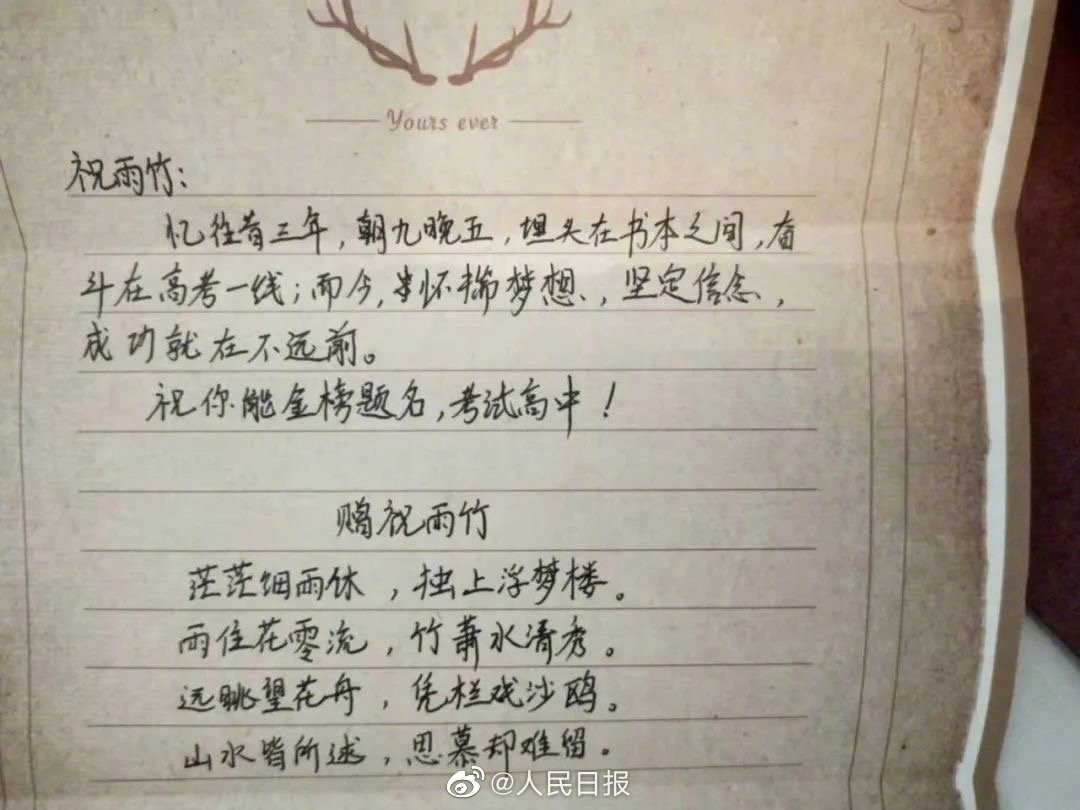 Yours ever
祝雨竹:
忆往昔三年,朝九晚五,埋头在书本之间,奋
斗在高考一线;而今,怀揣梦想,坚定信念,
成功就在不远前。
祝你能金榜题名,考试高中!
赠祝雨竹
茫茫细雨休,独上浮梦楼。
雨住花零流,竹萧水清秀。
远眺望花舟,凭栏戏沙鸥。
山水皆所逑,思慕却难留。
@人民日报